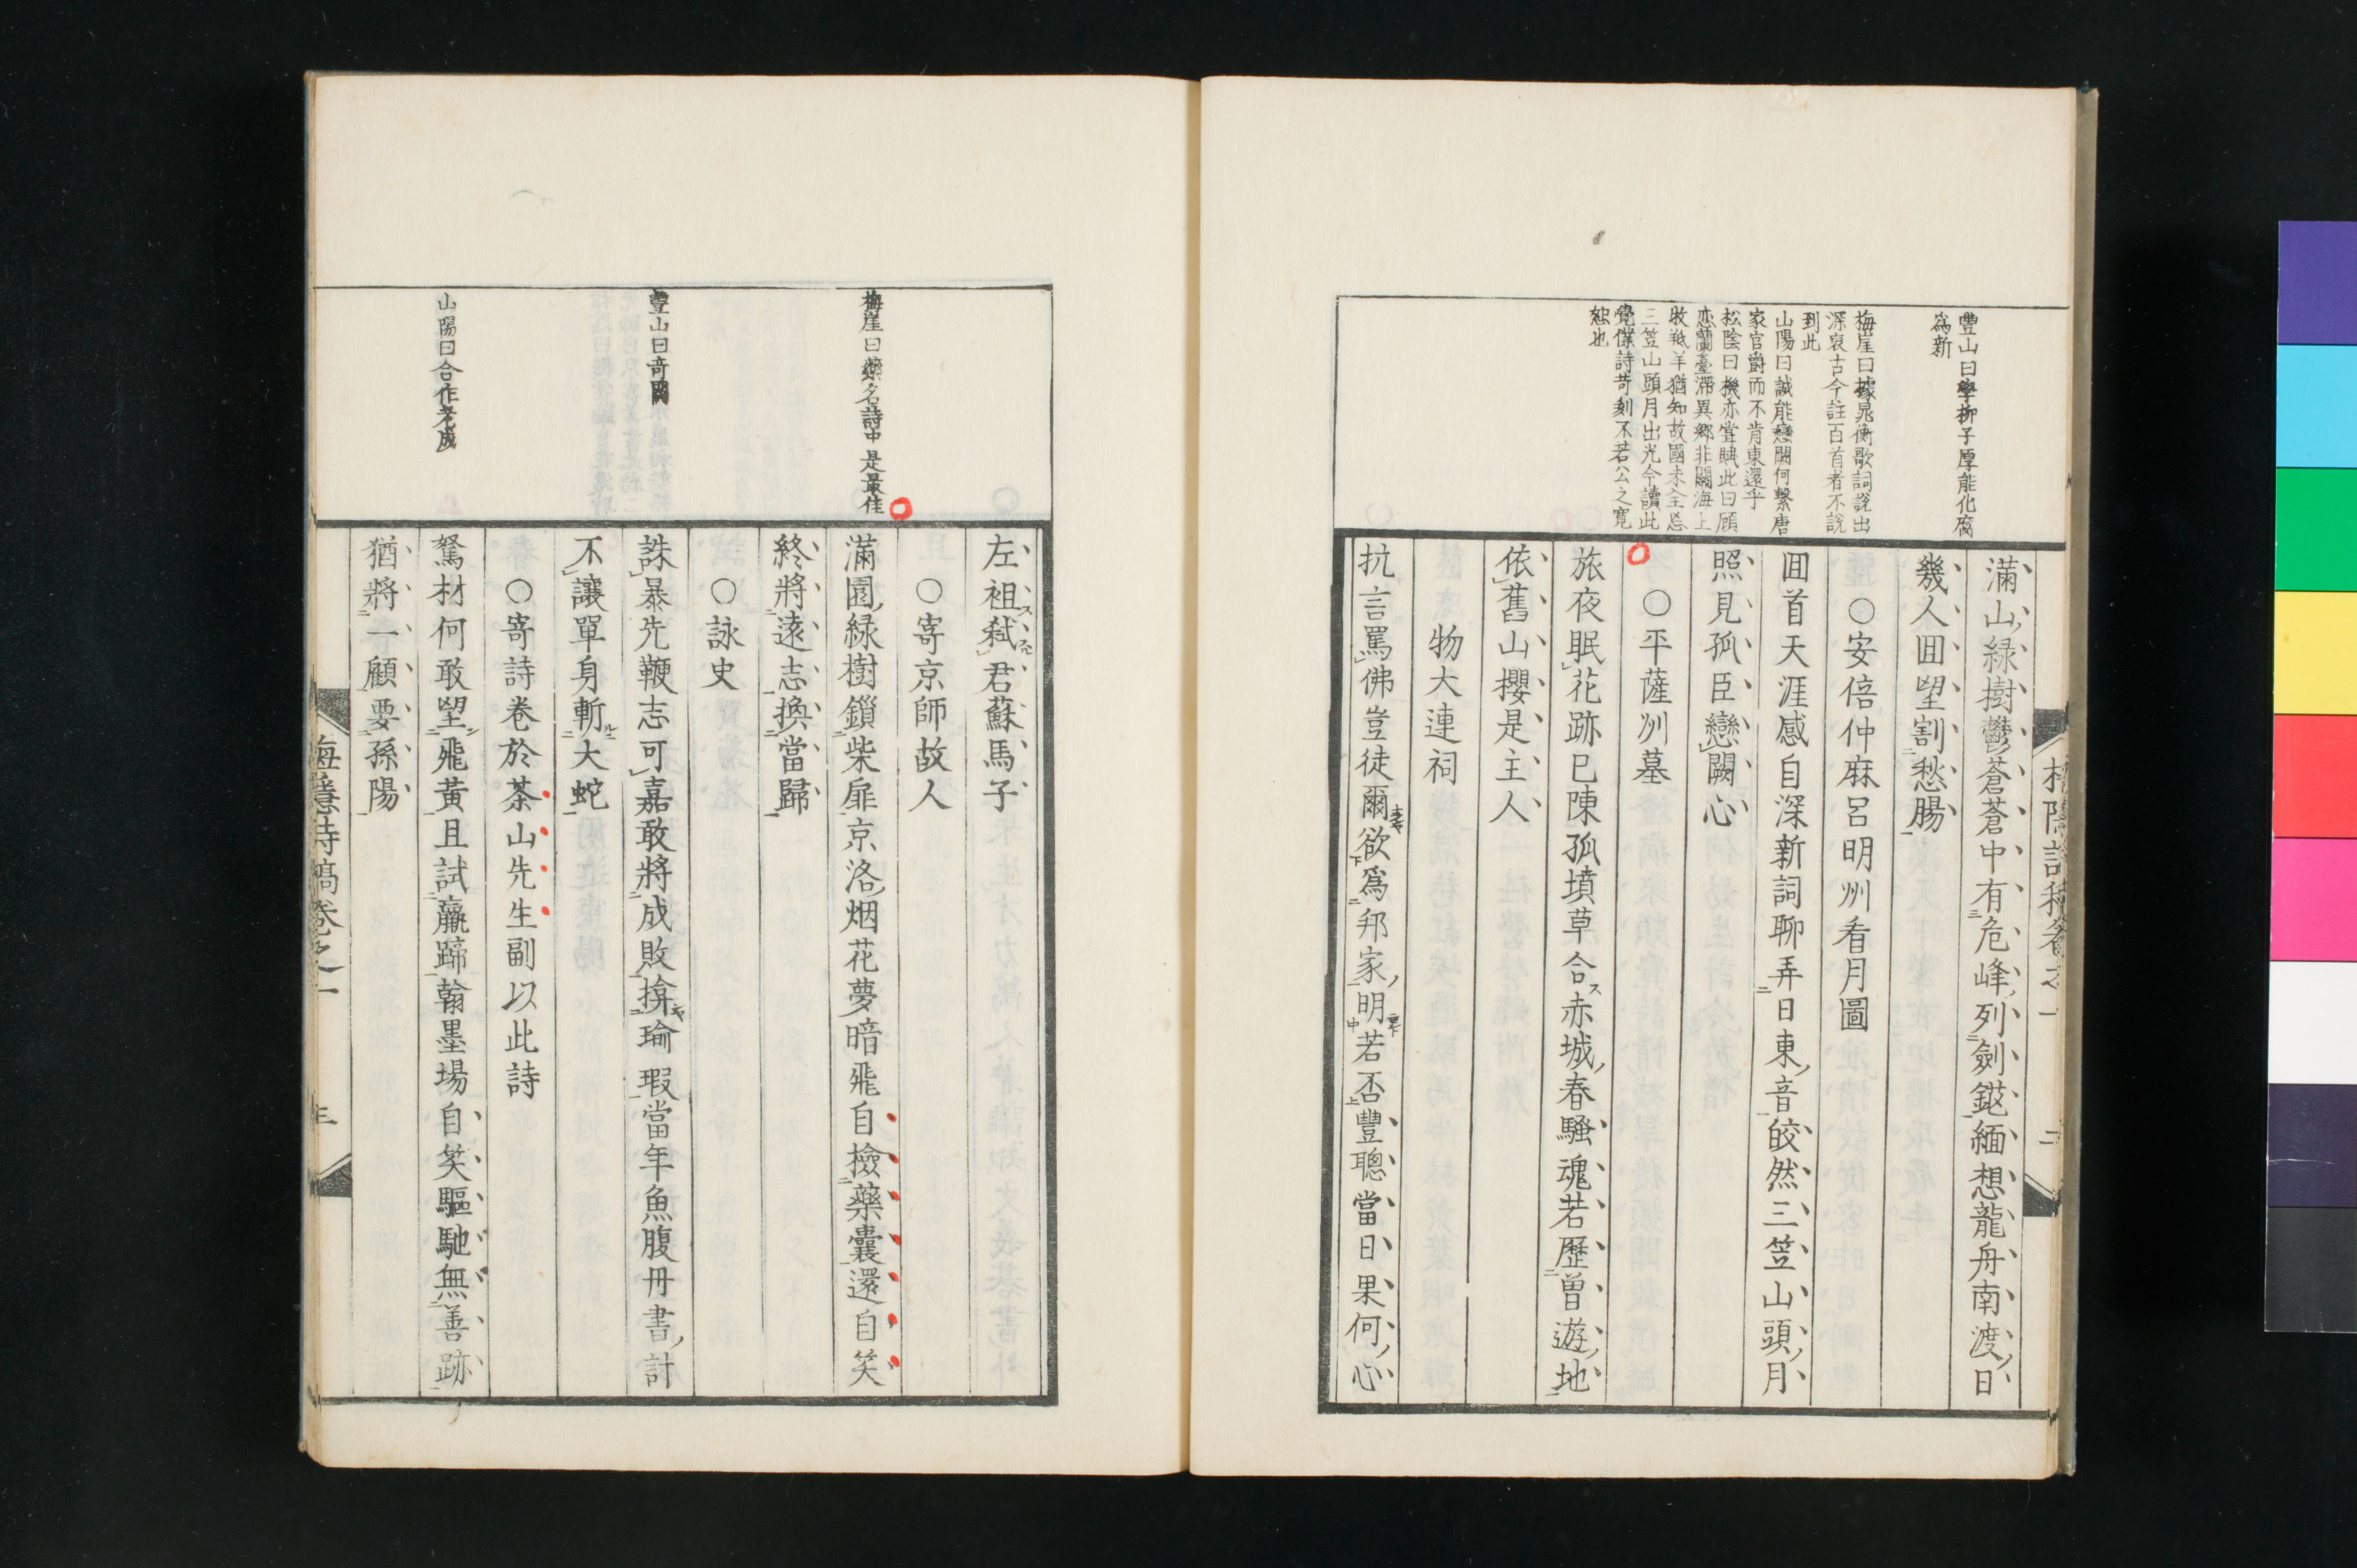 豐山曰學柳子厚能化腐
爲新
梅崖曰據晁衡歌詞說出
深哀古今註百首者不說
到此
山陽曰誠能戀闕何繫唐
家官爵而不肯東還乎
松陰曰機亦嘗賦此曰願
恋蘭臺滯異郷非關海上
牧羝羊猶知故國未全忘
三笠山頭月出光今讀此
覺僕詩苛刻不若公之寛
恕也
滿山緑樹鬱蒼蒼中有危峰列劍鋩緬想龍舟南渡日
幾人囬望割愁腸
○安倍仲麻呂明州看月圖
囬首天涯感自深新詞聊弄日東音皎然三笠山頭月
照見孤臣戀闕心
○平薩州墓
旅夜眠花跡已陳孤墳草合赤城春騷魂若歷曽遊地
依舊山櫻是主人
物大連祠
抗言罵佛豈徒爾欲爲邦家明若否豐聰當日果何心
梅崖曰藥名詩中是最佳
豐山曰奇闢
山陽曰合作老成
左袒弑君蘇馬子
○寄京師故人
滿園緑樹鎖柴扉京洛烟花夢暗飛自撿藥囊還自笑
終將遠志換當歸
○詠史
誅暴先鞭志可嘉敢將成敗揜瑜瑕當年魚腹冊書計
不讓單身斬大蛇
○寄詩卷於茶山先生副以此詩
駑材何敢望飛黃且試驘蹄翰墨場自笑驅馳無善跡
猶將一顧要孫陽
詩稿卷之一 三